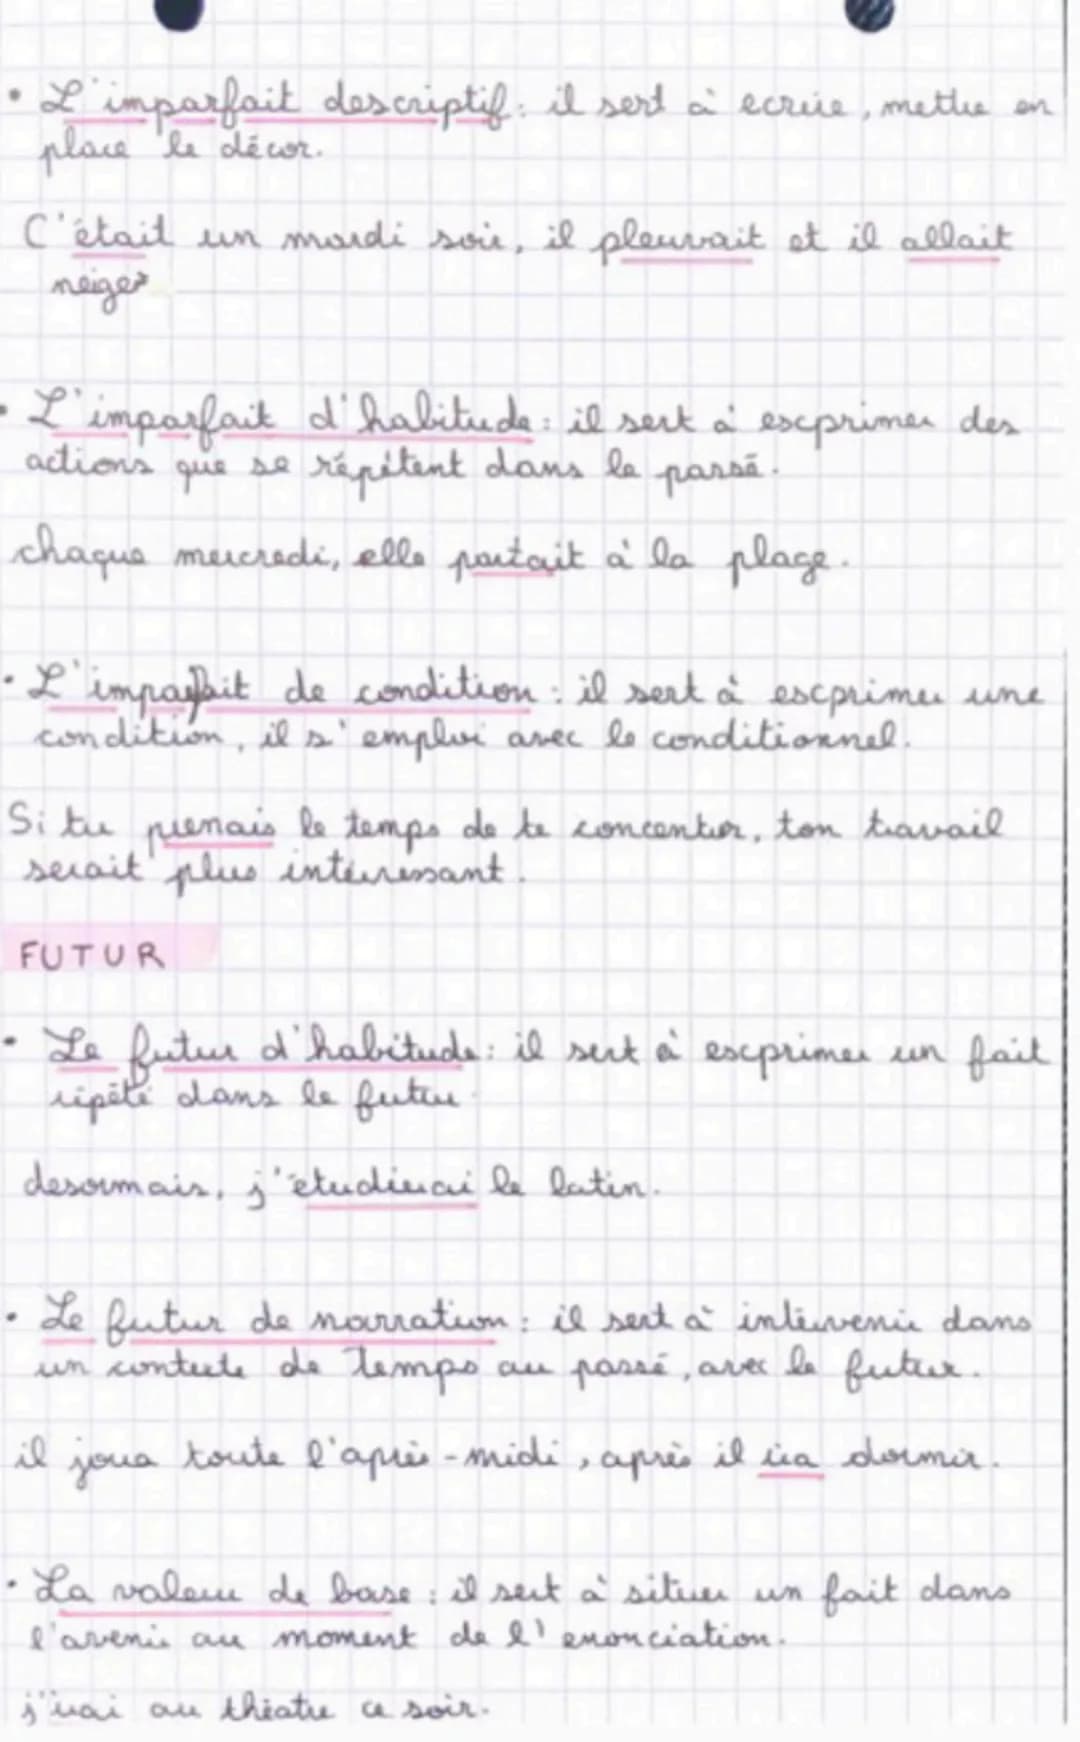 • L'imparfait descriptif : il sert à ecrire, mettre en
place le décor.
C'était un mardi soir, il pleuvait et il allait
neiger
• L'imparfait d'habitude : il sert à exprimer des
actions que se répètent dans le passé.
chaque mercredi, elle partait à la plage.
• L'imparfait de condition : il sert à exprimer une
condition, il s'emploi avec le conditionnel.
Si tu prenais le temps de te concentrer, ton travail
serait plus intéressant.
FUTUR
• Le futur d'habitude : il sert à exprimer un fait
répété dans le futur
desormais, j'étudierai le latin.
• Le futur de narration : il sert à intervenir dans
un contexte de temps au passé, avec le futur.
il joua toute l'après-midi, après il ira dormir.
• La valeur de base : il sert à situer un fait dans
l'avenir au moment de l'enonciation.
j'irai au théatre ce soir.